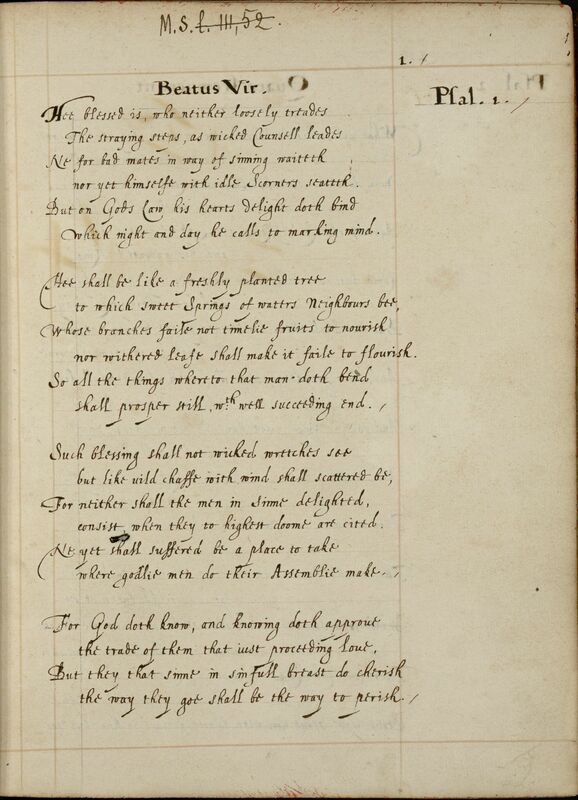 M.S. f. III, 52.
1. /
Beatus Vir.
Psal. 1. /
Hee blessed is, who neither loosely treades
The straying steps, as wicked Counsell leades
Ne for bad mates in way of sinning waiteth
nor yet himselfe with idle Scorners seateth.
But on Gods Law his hearts delight doth bind
which night and day he calls to marking mind.
Hee shall be like a freshly planted tree
to which sweet Springs of waters Neighbours bee,
Whose branches faile not timelie fruits to nourish
nor withered leafe shall make it faile to flourish.
So all the things whereto that man doth bend
shall prosper still, wth well succeeding end. /
Such blessing shall not wicked wretches see
but like vild chaffe with wind shall scattered be,
For neither shall the men in sinne delighted,
consist, when they to highest doome are cited.
Ne yet shall suffered be a place to take
where godlie men do their Assemblie make. /
For God doth know, and knowing doth approve
the trade of them that iust proceeding love,
But they that sinne in sinfull breast do cherish
the way they goe shall be the way to perish. /